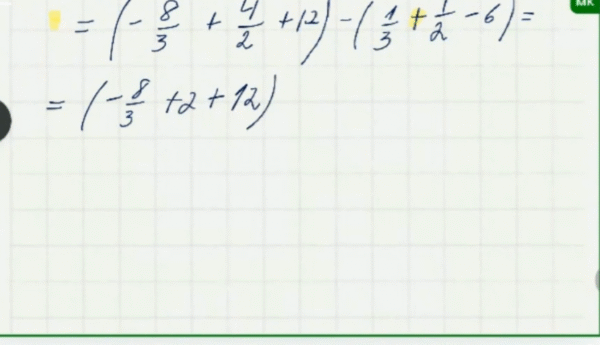 = (-8/3 + 4/2 + 12) - (1/3 + 1/2 - 6) =
= (-8/3 + 2 + 12)
MK